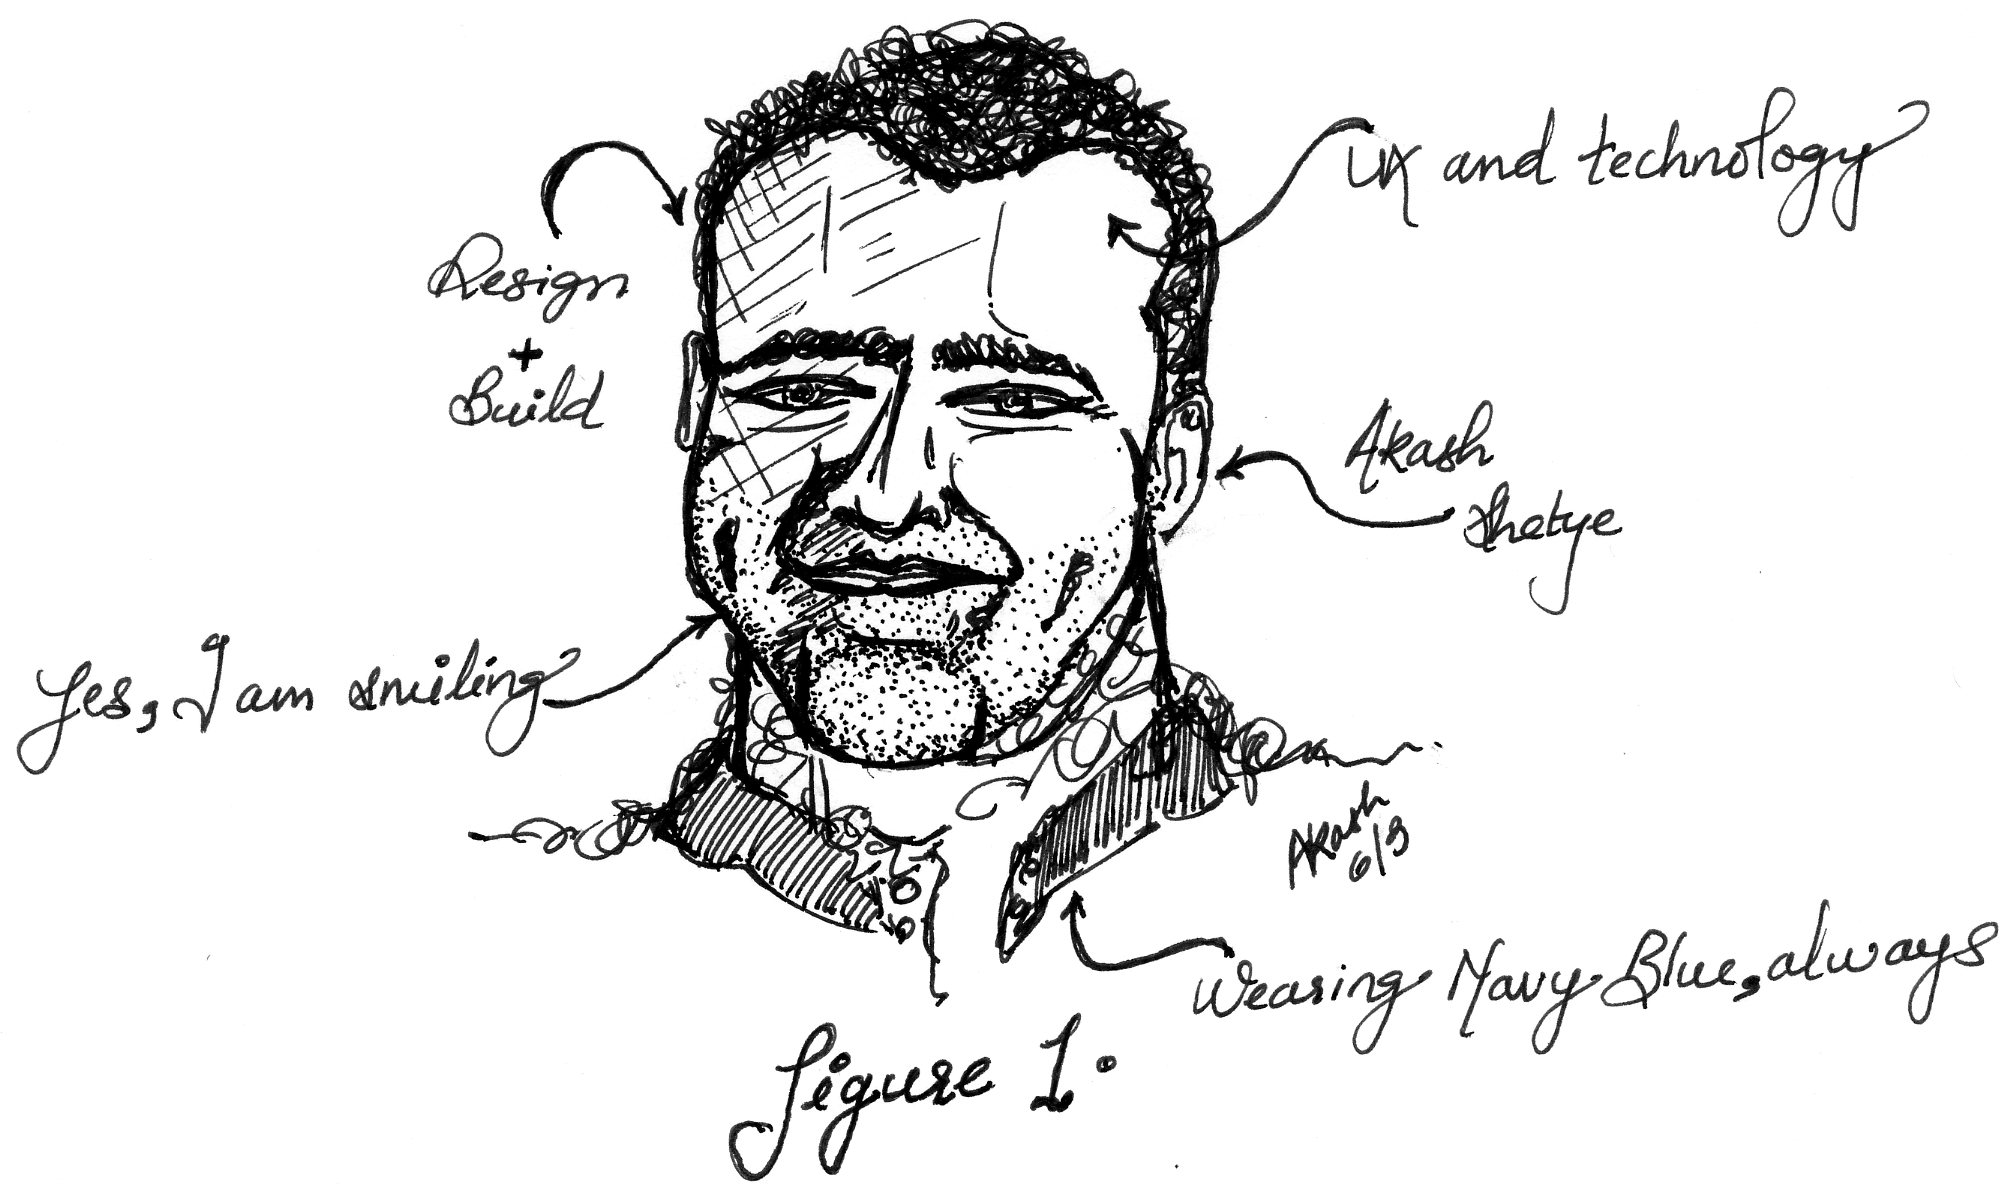 UX and technology
Design
+
Build
Akash
Shetye
Yes, I am smiling
Akash
6/3
Wearing Navy Blue, always
Figure 1.